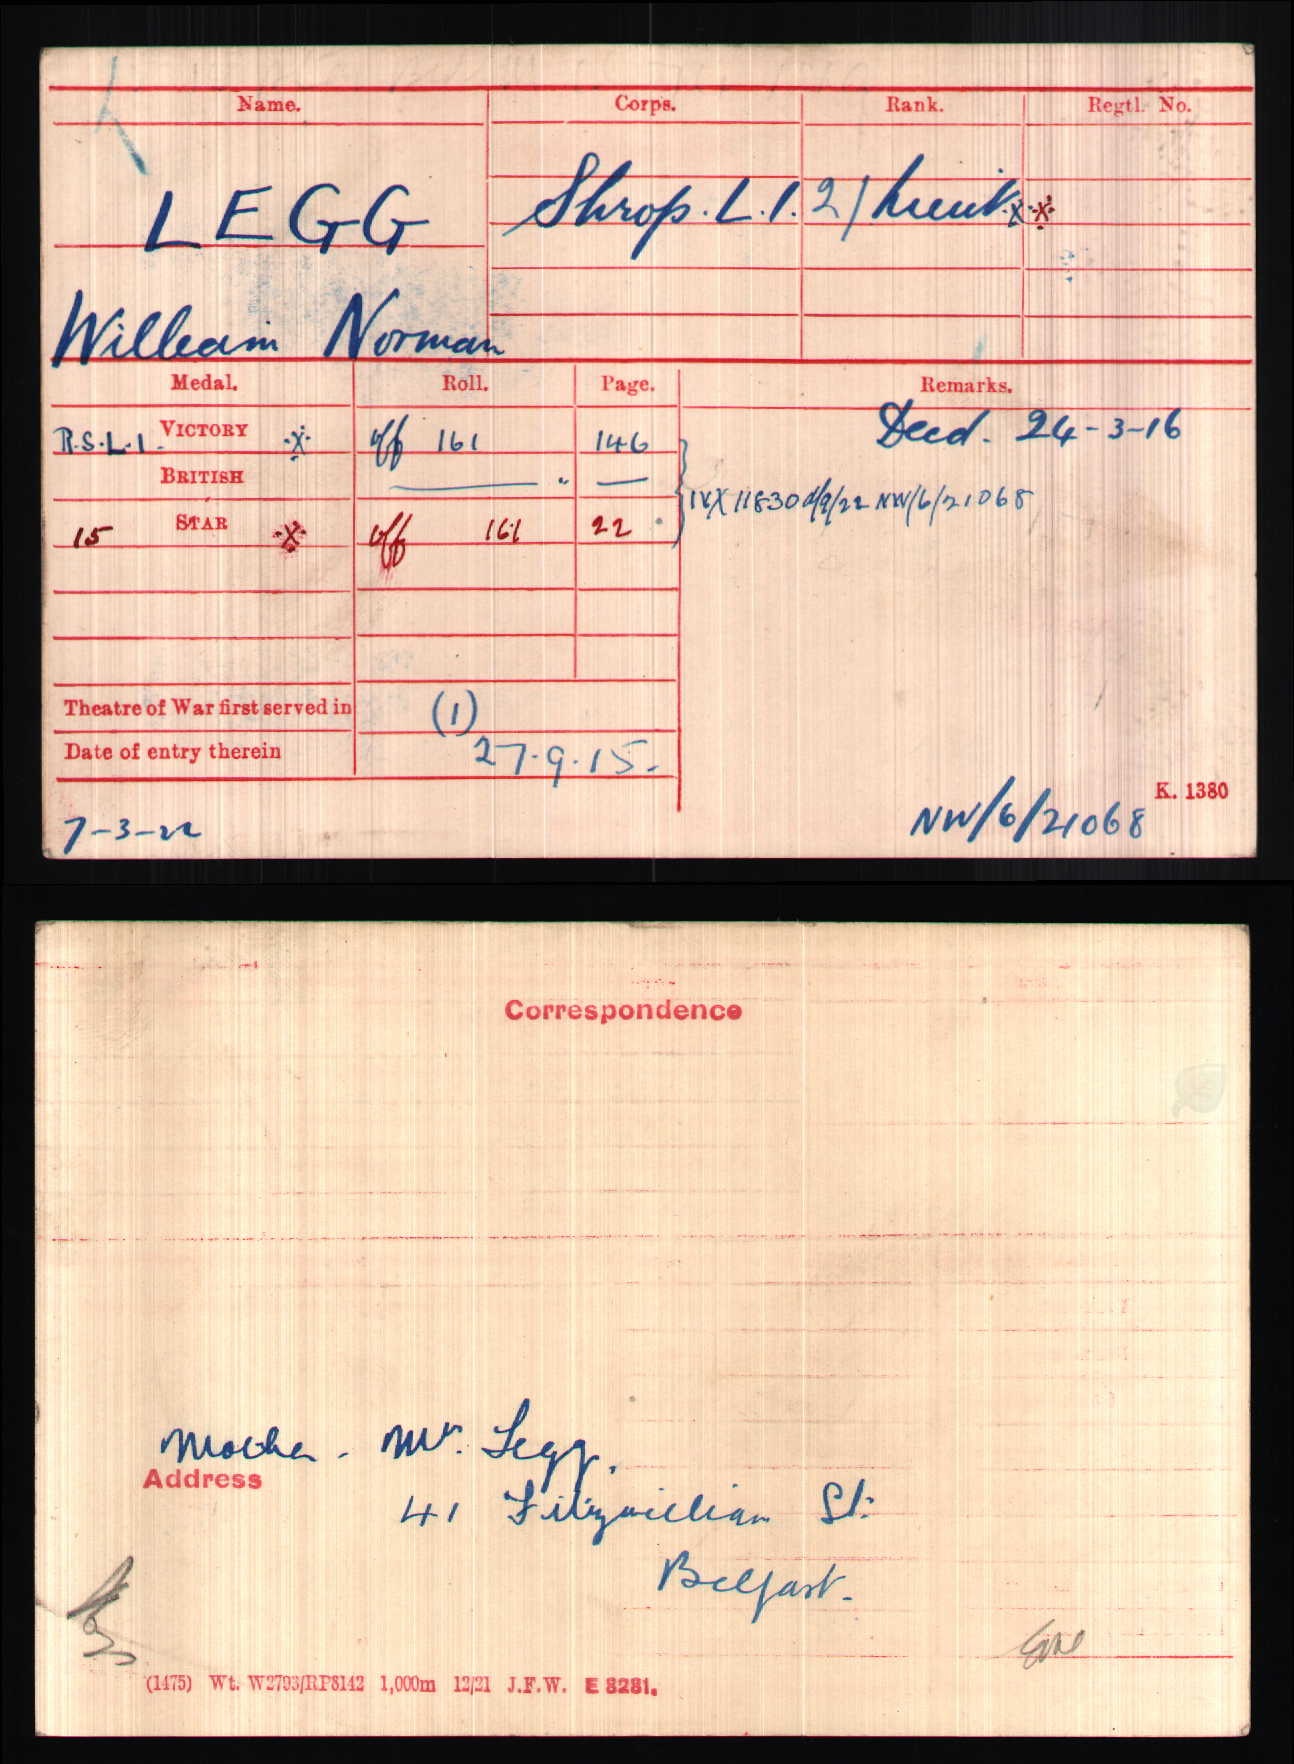 Name. Corps. Rank. Regtl. No.
LEGG Shrop. L.I. 2/Lieut. X X
William Norman
Medal. Roll. Page. Remarks.
Decd. 24-3-16
R.S.L.I. VICTORY X Off 161 146
BRITISH — " —
IVX 11830 NW/6/21068
15 STAR X Off 161 22
Theatre of War first served in (1)
Date of entry therein 27.9.15.
K. 1380
7-3-22 NW/6/21068
Correspondence
Mother. Mrs. Legg.
Address
41 Fitzwilliam St.
Belfast.
(1475) Wt. W2793/RP8142 1,000m 12/21 J.F.W. E 8281.